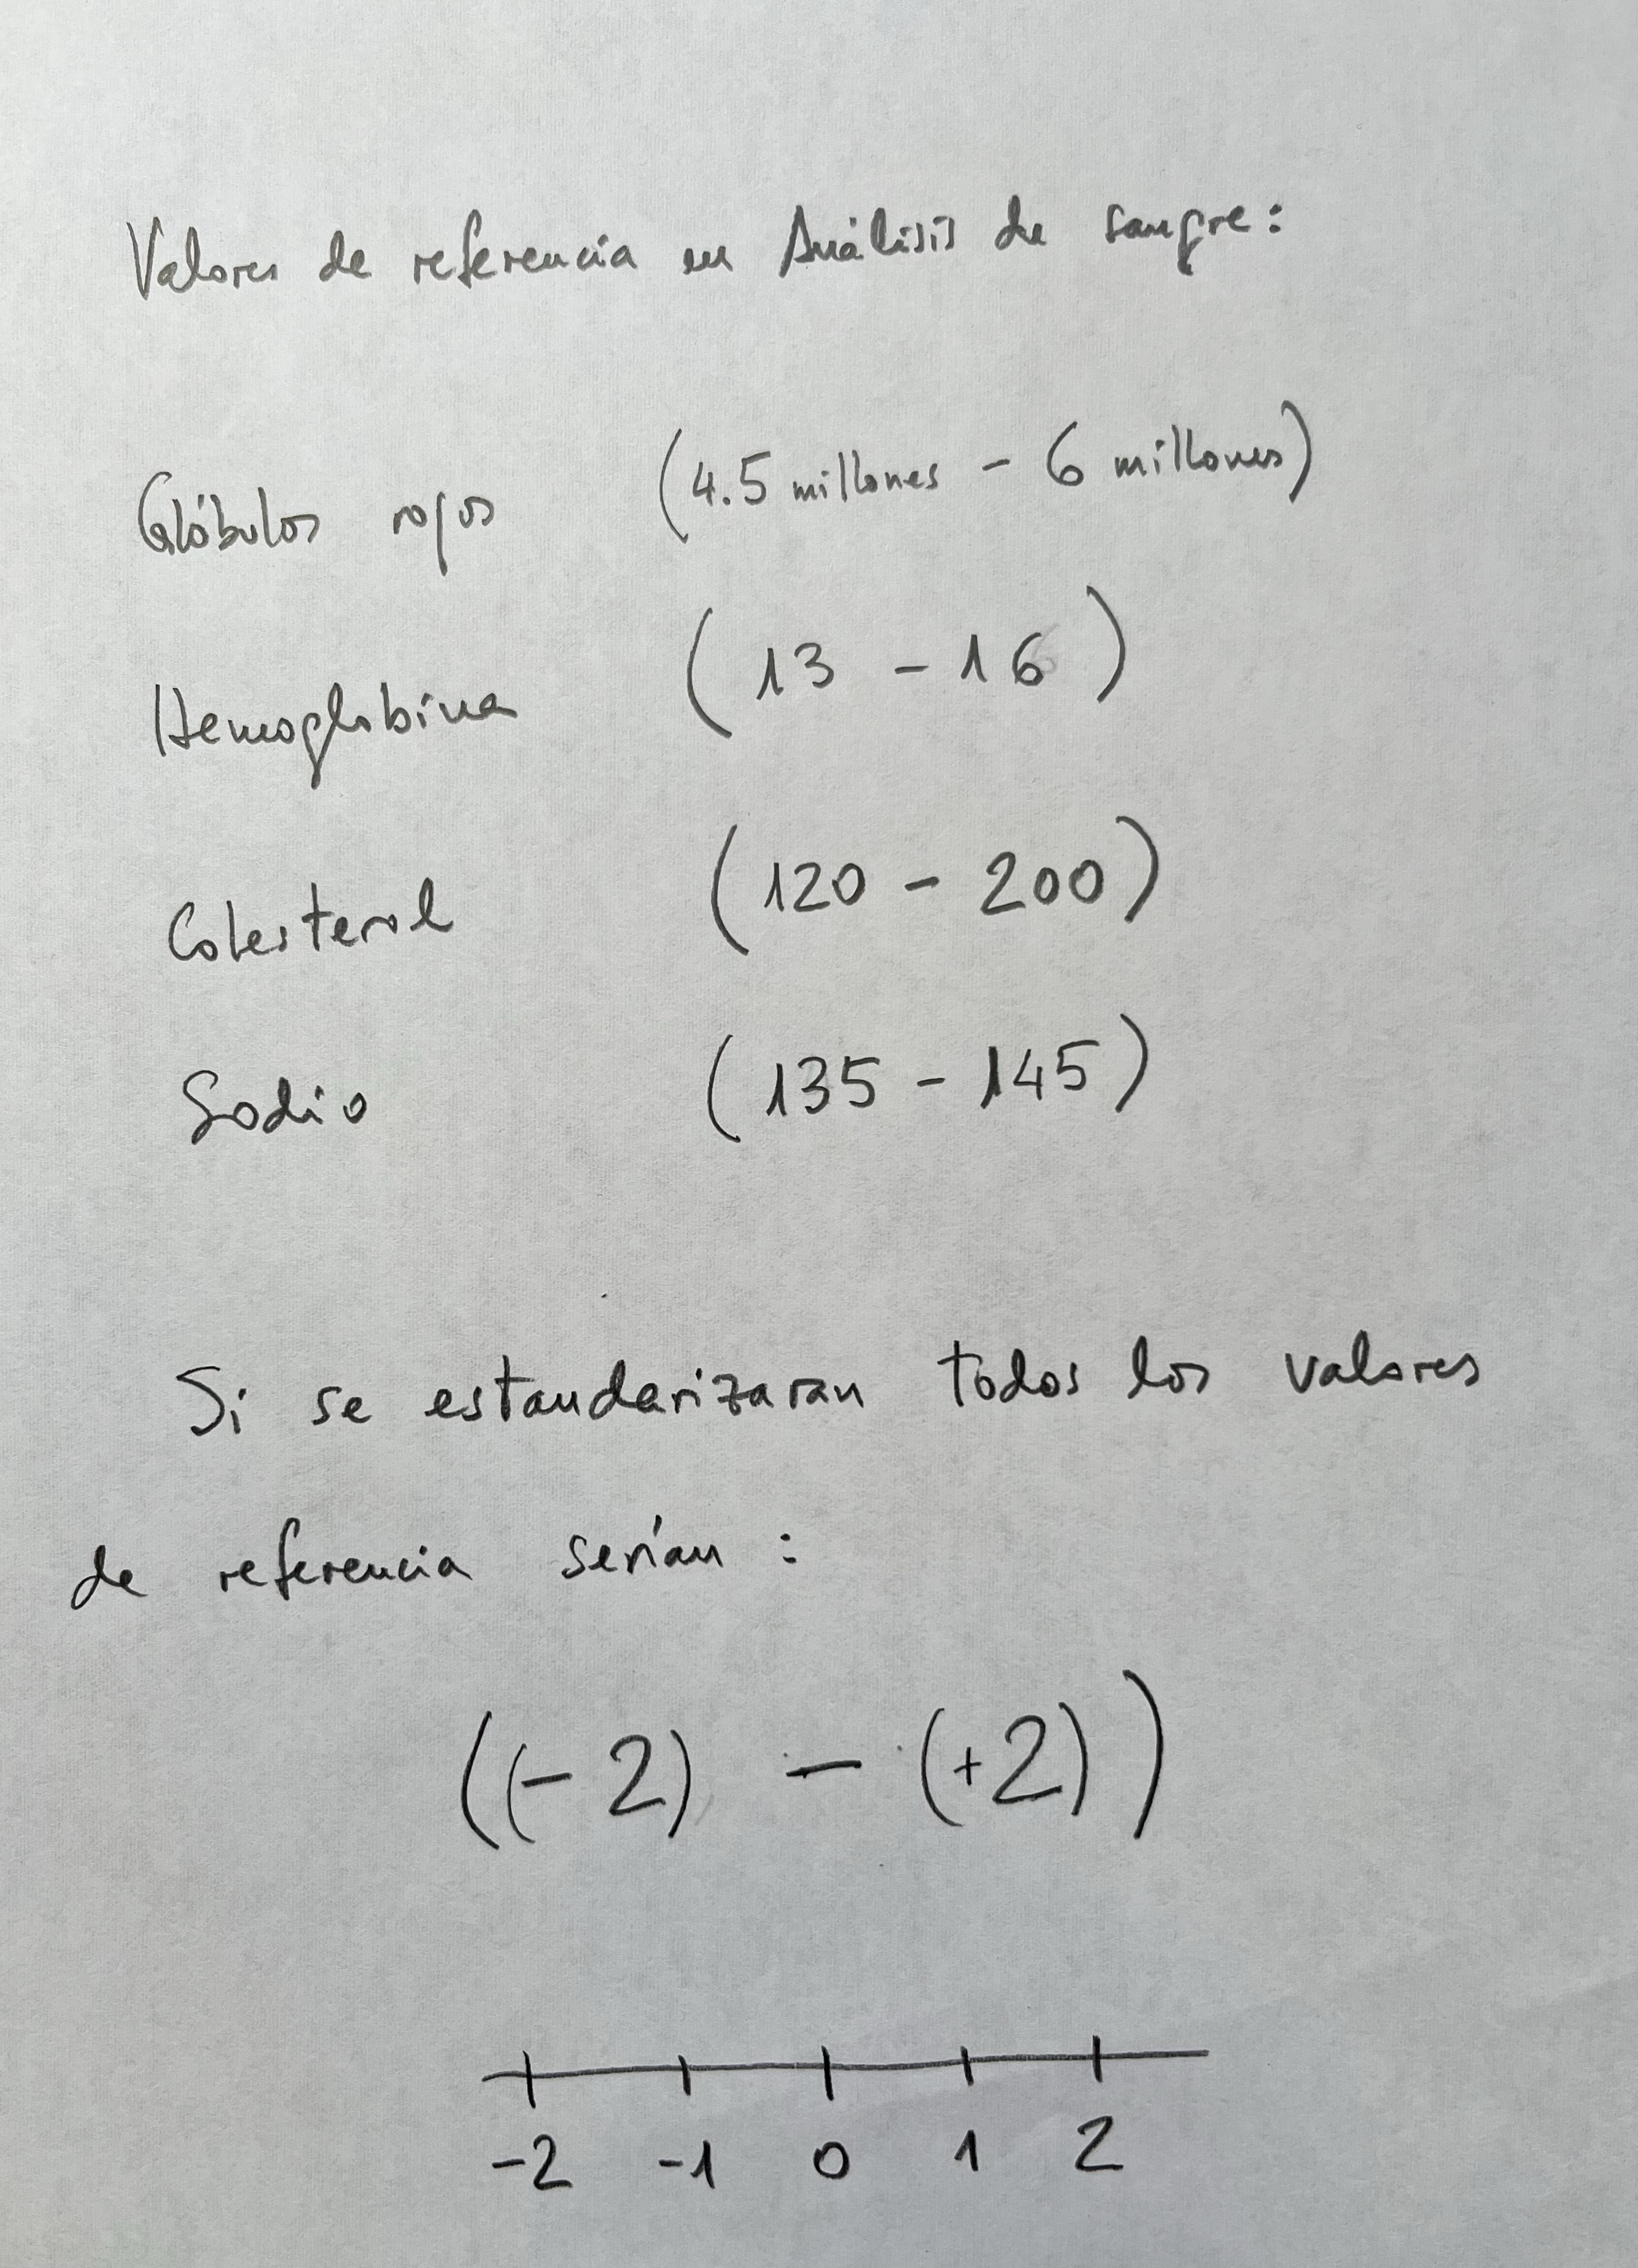 Valores de referencia en Análisis de sangre:
Glóbulos rojos (4.5 millones - 6 millones)
Hemoglobina (13 - 16)
Colesterol (120 - 200)
Sodio (135 - 145)
Si se estandarizaran todos los valores
de referencia serían :
((-2) - (+2))
-2 -1 0 1 2